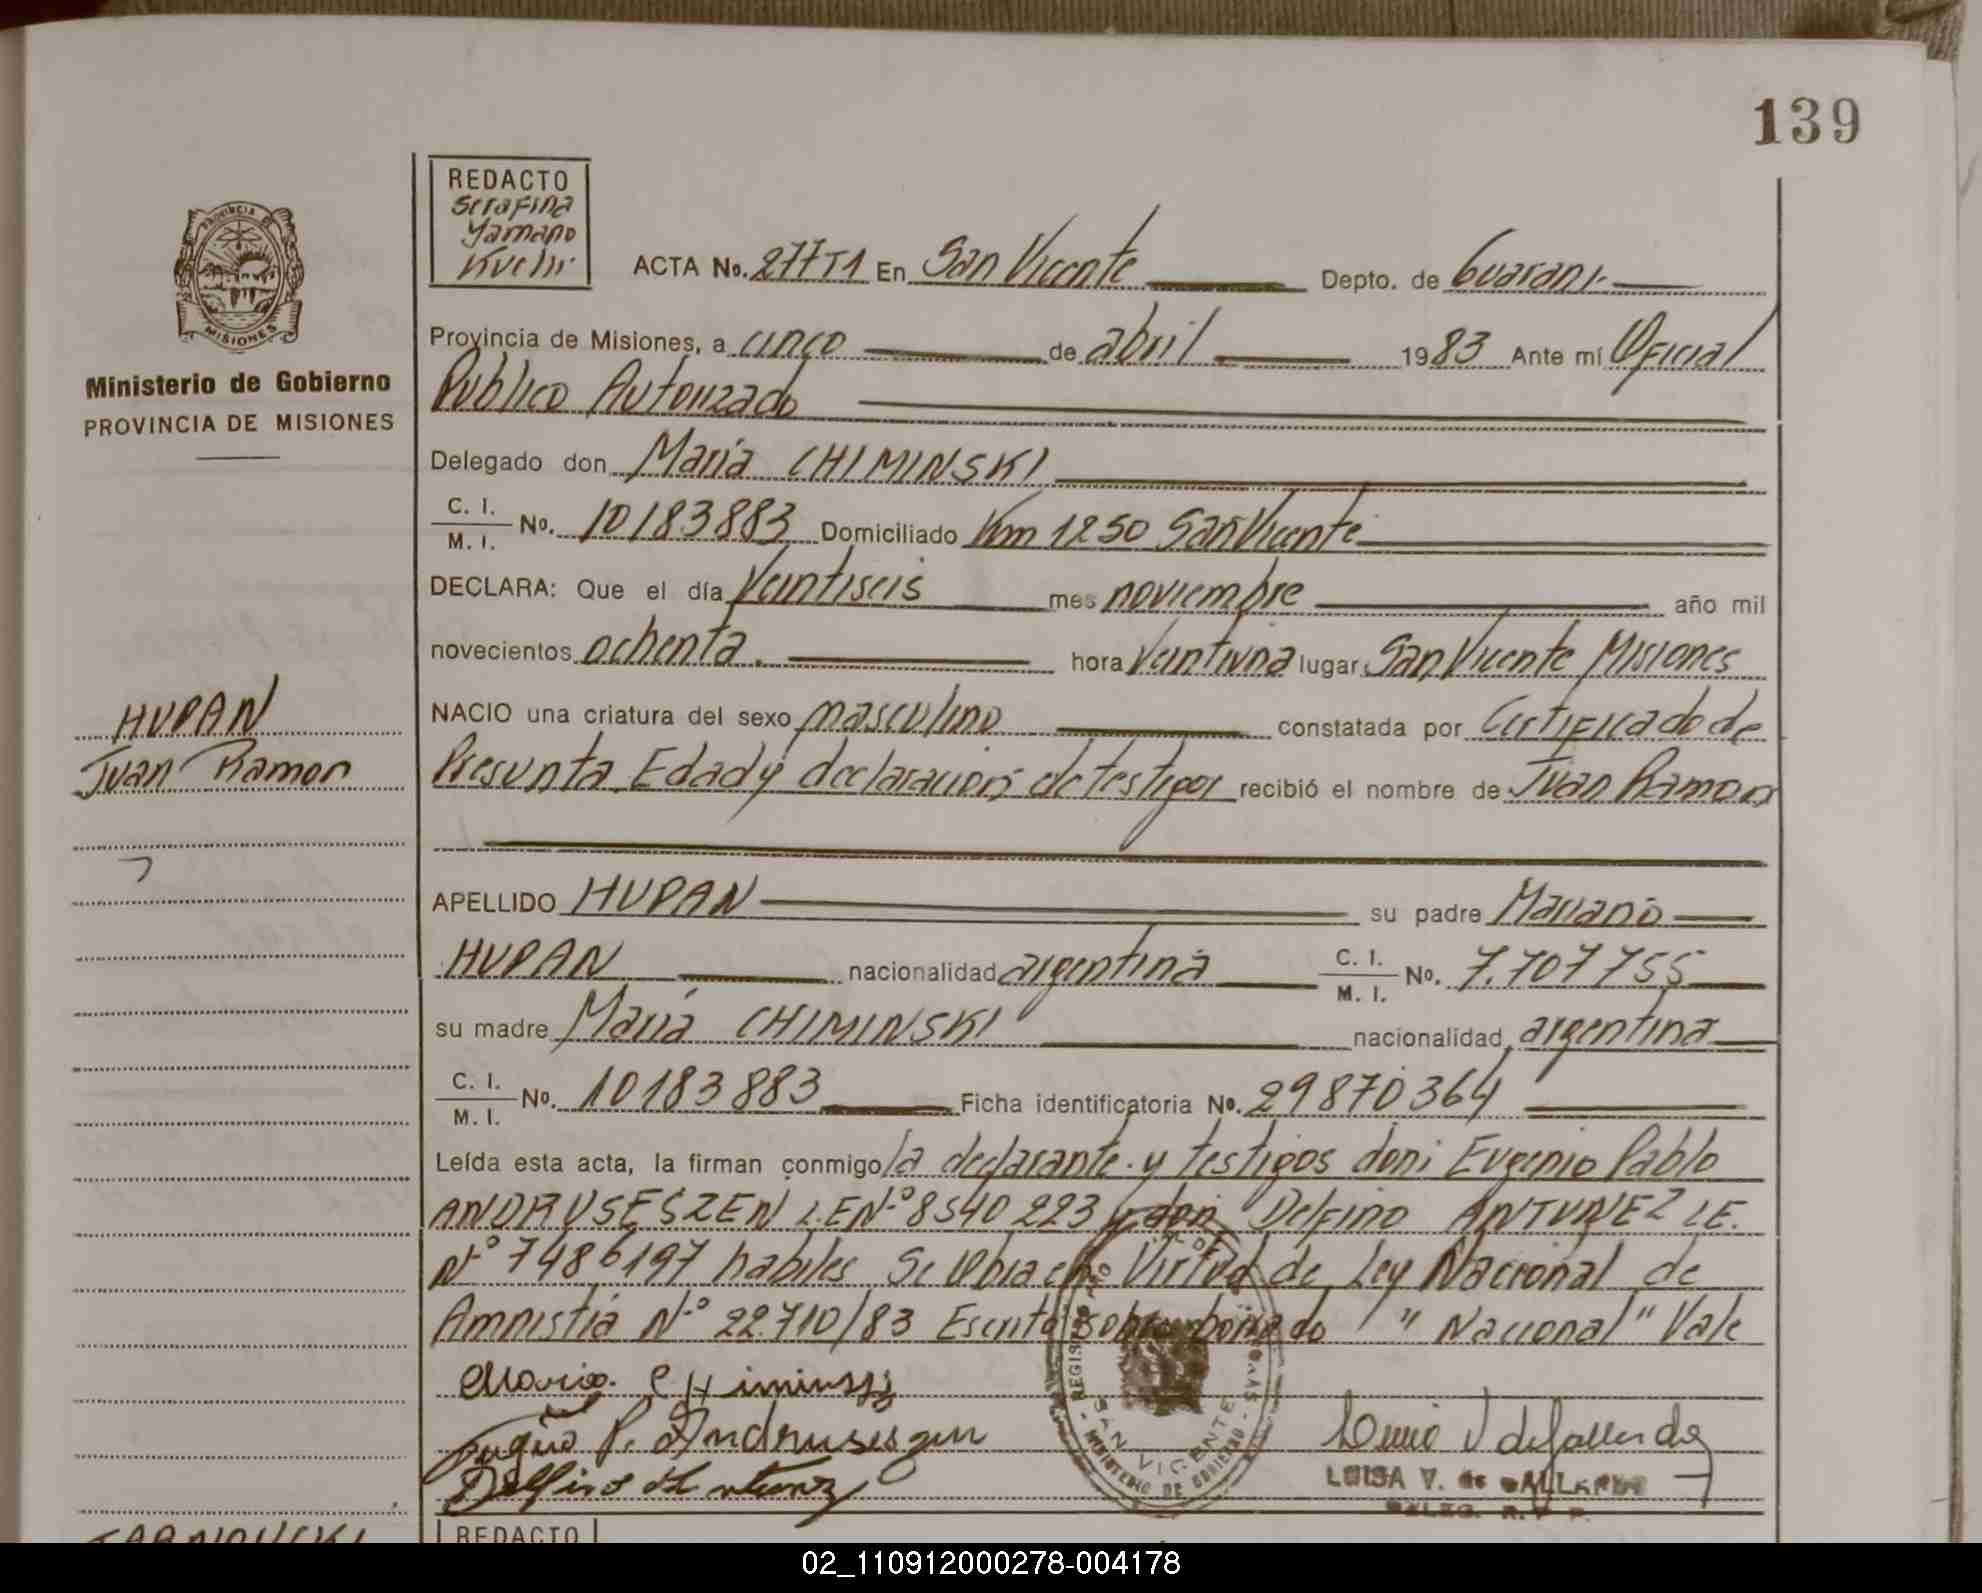 139
REDACTO
Serafina
Yamano
Kuchi
ACTA No. 277T1 En San Vicente Depto. de Guarani
Provincia de Misiones, a cinco de abril 1983 Ante mí Oficial
Público Autorizado
Delegado don María CHIMINSKI
C. I.
M. I. No. 10183883 Domiciliado Km 1250 San Vicente
DECLARA: Que el día Veintiseis mes noviembre año mil
novecientos ochenta. hora Veintiuna lugar San Vicente Misiones
NACIO una criatura del sexo masculino constatada por Certificado de
Presunta Edad y declaración de testigos recibió el nombre de Juan Ramon
APELLIDO HUPAN su padre Mariano
HUPAN nacionalidad argentina C. I.
M. I. No. 7.707755
su madre María CHIMINSKI nacionalidad argentina
C. I.
M. I. No. 10183883 Ficha identificatoria No. 29870364
Leída esta acta, la firman conmigo la declarante y testigos don: Eugenio Pablo
ANDRUSESZEN L.E Nº 8540223 y don Delfino ANTUNEZ LE.
Nº 7486197 habiles Se Obra en Virtud de Ley Nacional de
Amnistía Nº 22.710/83 Escrito sobreborrado "Nacional" Vale
Maria Chiminski
P. Andruseszen
Delfino Antunez
LUISA V. de GALLARDO
REGISTRO
SAN VICENTE
MINISTERIO DE GOBIERNO
PROVINCIA DE
MISIONES
Ministerio de Gobierno
PROVINCIA DE MISIONES
HUPAN
Juan Ramon
REDACTO
02_110912000278-004178